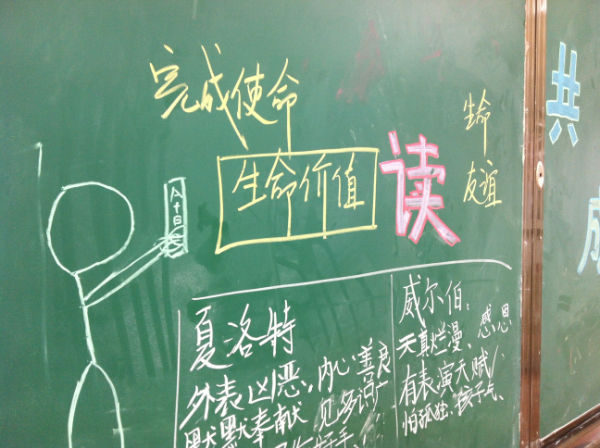 完成使命
生命价值
读
生命
友谊
共
成
夏洛特
外表凶恶,内心善良
默默奉献 见多识广
威尔伯:
天真烂漫、感恩
有表演天赋/
怕孤独、孩子气